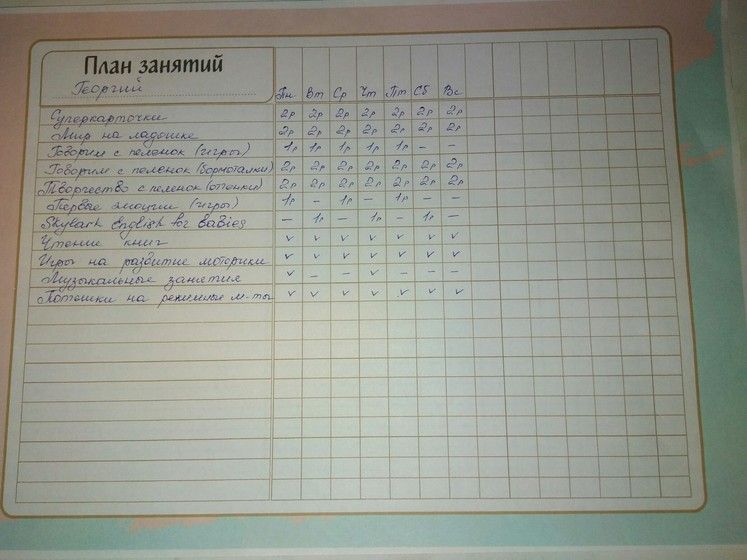 План занятий
Георгий Пн. Вт Ср Чт Пт Сб Вс
Суперкарточки 2р 2р 2р 2р 2р 2р 2р
Мир на ладошке 2р 2р 2р 2р 2р 2р 2р
Говорим с пеленок (игры) 1р 1р 1р 1р 1р – –
Говорим с пеленок (бормоталки) 2р 2р 2р 2р 2р 2р 2р
Творчество с пеленок (оттенки) 2р 2р 2р 2р 2р 2р 2р
Первые эмоции (игры) 1р – 1р – 1р – –
Skylark English for Babies – 1р – 1р – 1р –
Чтение книг v v v v v v v
Игры на развитие моторики v v v v v v v
Музыкальные занятия v – – v – – –
Потешки на режимные м-ты v v v v v v v